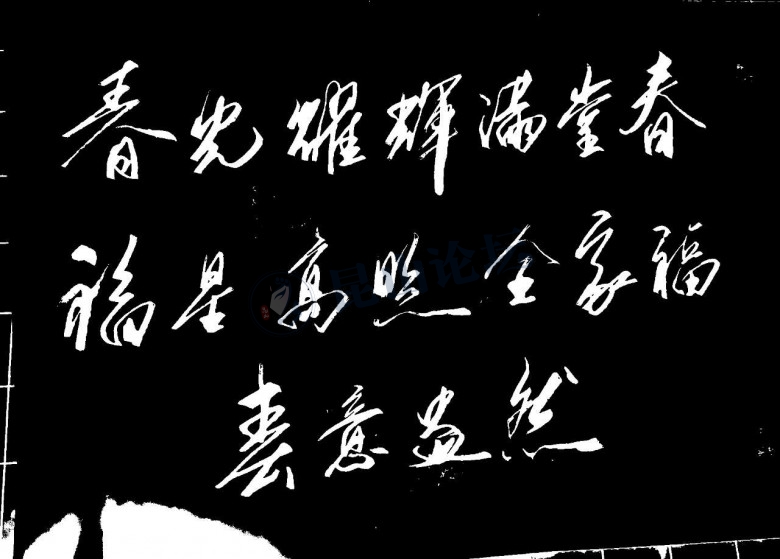 春光耀輝满堂春
福星高照全家福
春意盎然